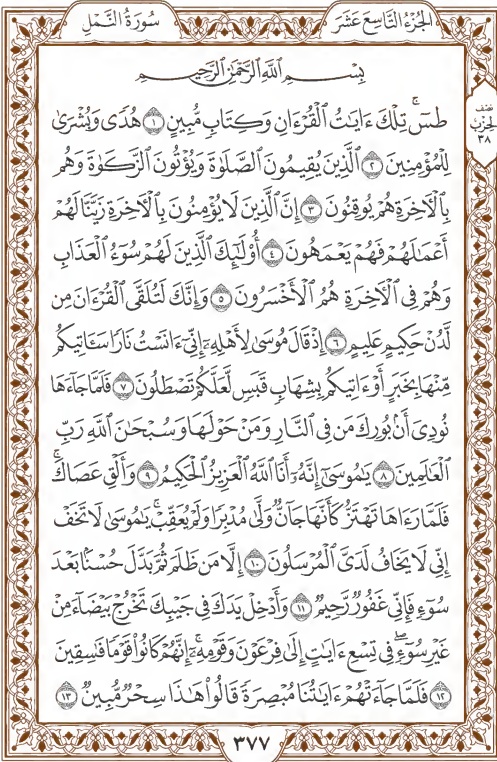 الجُزْءُ التَّاسِعَ عَشَرَ
سُورَةُ النَّمْلِ
نصف
الحزب
٣٨
بِسْمِ اللَّهِ الرَّحْمَٰنِ الرَّحِيمِ
طسٓ ۚ تِلْكَ ءَايَٰتُ الْقُرْءَانِ وَكِتَابٍ مُّبِينٍ ۝١ هُدًى وَبُشْرَىٰ
لِلْمُؤْمِنِينَ ۝٢ الَّذِينَ يُقِيمُونَ الصَّلَوٰةَ وَيُؤْتُونَ الزَّكَوٰةَ وَهُم
بِالْءَاخِرَةِ هُمْ يُوقِنُونَ ۝٣ إِنَّ الَّذِينَ لَا يُؤْمِنُونَ بِالْءَاخِرَةِ زَيَّنَّا لَهُمْ
أَعْمَٰلَهُمْ فَهُمْ يَعْمَهُونَ ۝٤ أُوْلَٰٓئِكَ الَّذِينَ لَهُمْ سُوٓءُ الْعَذَابِ
وَهُمْ فِي الْءَاخِرَةِ هُمُ الْأَخْسَرُونَ ۝٥ وَإِنَّكَ لَتُلَقَّى الْقُرْءَانَ مِن
لَّدُنْ حَكِيمٍ عَلِيمٍ ۝٦ إِذْ قَالَ مُوسَىٰ لِأَهْلِهِۦٓ إِنِّيٓ ءَانَسْتُ نَارًا سَـَٔاتِيكُم
مِّنْهَا بِخَبَرٍ أَوْ ءَاتِيكُم بِشِهَابٍ قَبَسٍ لَّعَلَّكُمْ تَصْطَلُونَ ۝٧ فَلَمَّا جَآءَهَا
نُودِيَ أَنۢ بُورِكَ مَن فِي النَّارِ وَمَنْ حَوْلَهَا وَسُبْحَٰنَ اللَّهِ رَبِّ
الْعَٰلَمِينَ ۝٨ يَٰمُوسَىٰٓ إِنَّهُۥٓ أَنَا اللَّهُ الْعَزِيزُ الْحَكِيمُ ۝٩ وَأَلْقِ عَصَاكَ ۚ
فَلَمَّا رَءَاهَا تَهْتَزُّ كَأَنَّهَا جَآنٌّ وَلَّىٰ مُدْبِرًا وَلَمْ يُعَقِّبْ ۚ يَٰمُوسَىٰ لَا تَخَفْ
إِنِّي لَا يَخَافُ لَدَيَّ الْمُرْسَلُونَ ۝١٠ إِلَّا مَن ظَلَمَ ثُمَّ بَدَّلَ حُسْنًۢا بَعْدَ
سُوٓءٍ فَإِنِّي غَفُورٌ رَّحِيمٌ ۝١١ وَأَدْخِلْ يَدَكَ فِي جَيْبِكَ تَخْرُجْ بَيْضَآءَ مِنْ
غَيْرِ سُوٓءٍ ۖ فِي تِسْعِ ءَايَٰتٍ إِلَىٰ فِرْعَوْنَ وَقَوْمِهِۦٓ ۚ إِنَّهُمْ كَانُوا۟ قَوْمًا فَٰسِقِينَ
۝١٢ فَلَمَّا جَآءَتْهُمْ ءَايَٰتُنَا مُبْصِرَةً قَالُوا۟ هَٰذَا سِحْرٌ مُّبِينٌ ۝١٣
٣٧٧